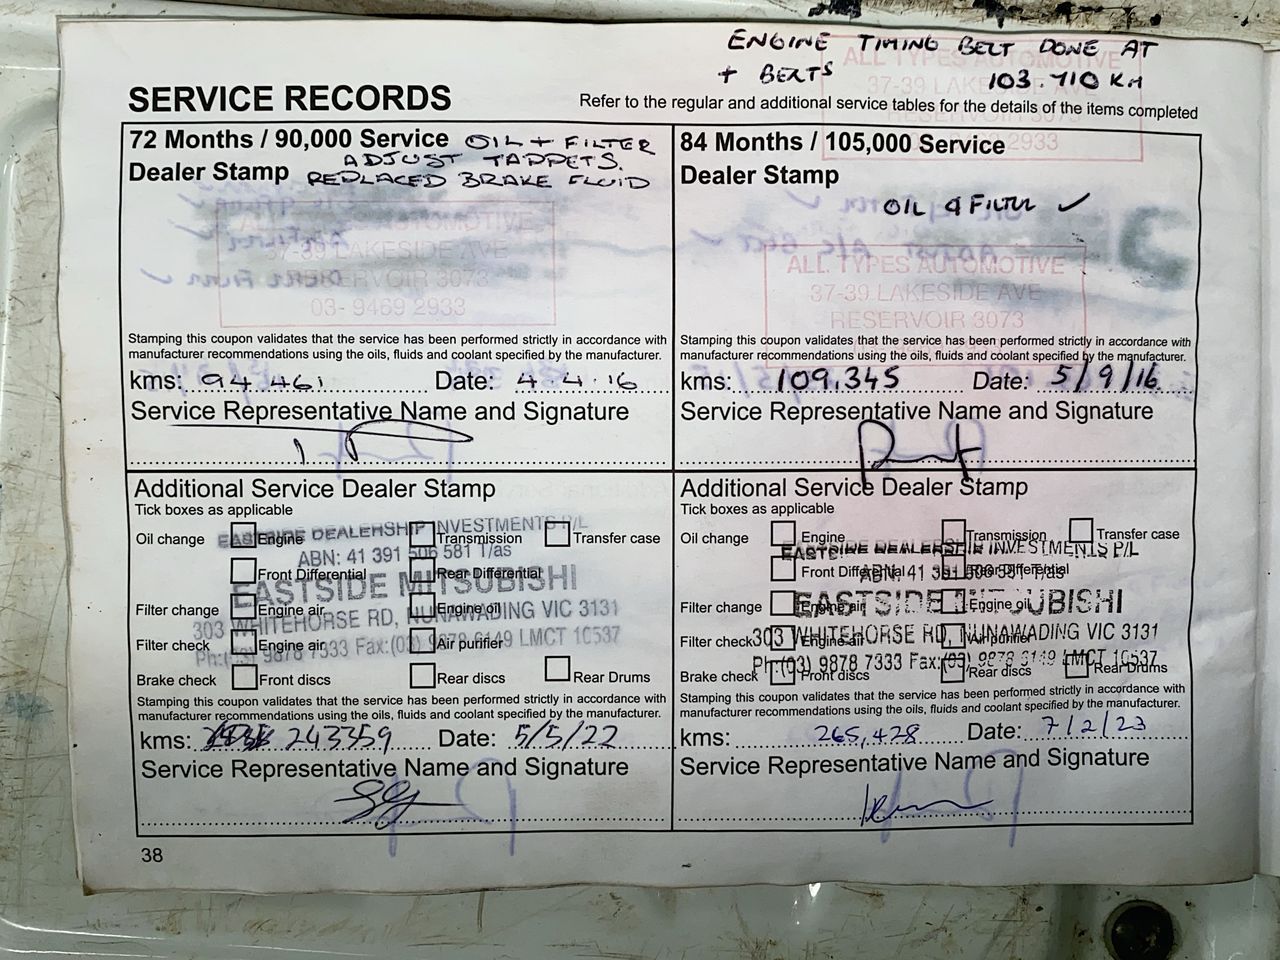 ENGINE TIMING BELT DONE AT
+ BERTS 103.710 KM
ALL TYPES AUTOMOTIVE
37-39 LAKESIDE AVE
RESERVOIR 3073
2933
SERVICE RECORDS
Refer to the regular and additional service tables for the details of the items completed
72 Months / 90,000 Service OIL + FILTER
ADJUST TAPPETS.
Dealer Stamp REPLACED BRAKE FLUID
ALL TYPES AUTOMOTIVE
37-39 LAKESIDE AVE
RESERVOIR 3073
03- 9469 2933
Stamping this coupon validates that the service has been performed strictly in accordance with
manufacturer recommendations using the oils, fluids and coolant specified by the manufacturer.
kms: 94.461 Date: 4.4.16
Service Representative Name and Signature
84 Months / 105,000 Service
Dealer Stamp
OIL & FILTER ✓
ALL TYPES AUTOMOTIVE
37-39 LAKESIDE AVE
RESERVOIR 3073
Stamping this coupon validates that the service has been performed strictly in accordance with
manufacturer recommendations using the oils, fluids and coolant specified by the manufacturer.
kms: 109,345 Date: 5/9/16
Service Representative Name and Signature
Additional Service Dealer Stamp
Tick boxes as applicable
Oil change Engine Transmission Transfer case
Front Differential Rear Differential
Filter change Engine air Engine oil
Filter check Engine air Air purifier
Brake check Front discs Rear discs Rear Drums
EASTSIDE DEALERSHIP INVESTMENTS P/L
ABN: 41 391 506 581 T/as
EASTSIDE MITSUBISHI
303 WHITEHORSE RD, NUNAWADING VIC 3131
Ph:(03) 9878 7333 Fax:(03) 9878 6149 LMCT 10537
Stamping this coupon validates that the service has been performed strictly in accordance with
manufacturer recommendations using the oils, fluids and coolant specified by the manufacturer.
kms: 243359 Date: 5/5/22
Service Representative Name and Signature
Additional Service Dealer Stamp
Tick boxes as applicable
Oil change Engine Transmission Transfer case
Front Differential Rear Differential
Filter change Engine air Engine oil
Filter check Engine air Air purifier
Brake check Front discs Rear discs Rear Drums
EASTSIDE DEALERSHIP INVESTMENTS P/L
ABN: 41 391 506 581 T/as
EASTSIDE MITSUBISHI
303 WHITEHORSE RD, NUNAWADING VIC 3131
Ph:(03) 9878 7333 Fax:(03) 9878 6149 LMCT 10537
Stamping this coupon validates that the service has been performed strictly in accordance with
manufacturer recommendations using the oils, fluids and coolant specified by the manufacturer.
kms: 265,428 Date: 7/2/23
Service Representative Name and Signature
38